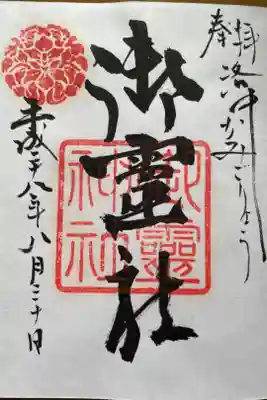 奉拝
洛中かみごりょう
御霊社
御靈神社
平成二十八年八月二十日